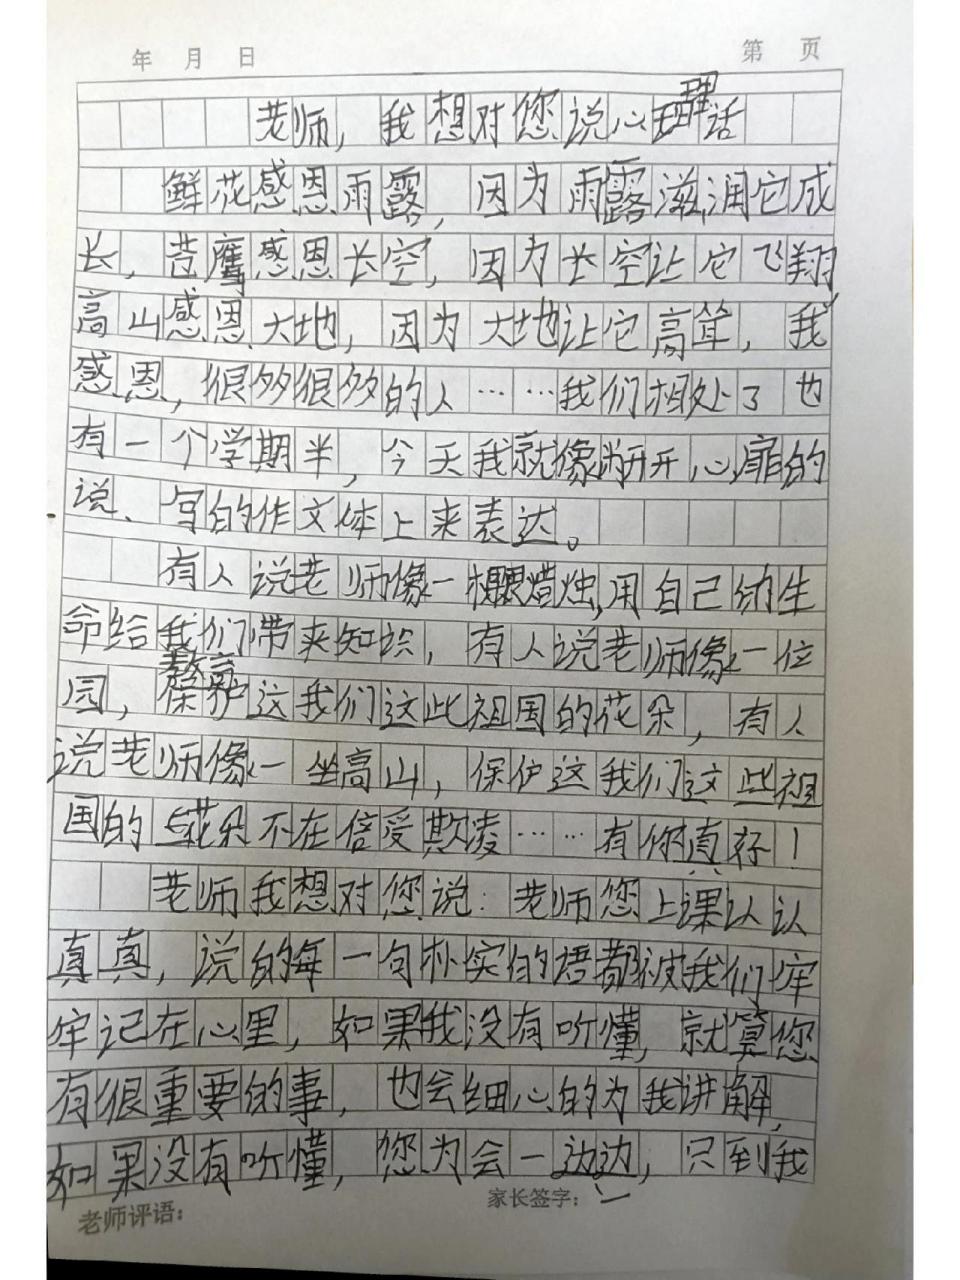 年 月 日 第 页
老师，我想对您说心理话
鲜花感恩雨露，因为雨露滋润它成
长，苍鹰感恩长空，因为长空让它飞翔，
高山感恩大地，因为大地让它高耸，我
感恩，很多很多的人……我们相处了也
有一个学期半，今天我就像敞开心扉的
说、写的作文体上来表达。
有人说老师像一根蜡烛，用自己的生
命给我们带来知识，有人说老师像一位
园，保护这我们这些祖国的花朵，有人
说老师像一坐高山，保护这我们这些祖
国的花朵不在信受欺凌……有你真好！
老师我想对您说：老师您上课认认
真真，说的每一句朴实的语都被我们牢
牢记在心里，如果我没有听懂，就算您
有很重要的事，也会细心的为我讲解，
如果没有听懂，您为会一边边，只到我
老师评语： 家长签字：